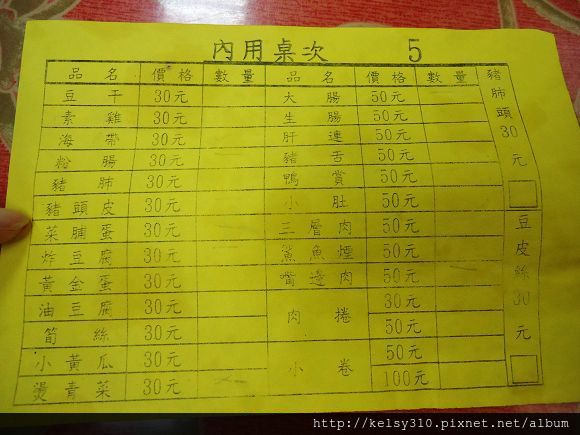 內用桌次 5
品名 價格 數量 品名 價格 數量
豆干 30元 大腸 50元
素雞 30元 生腸 50元
海帶 30元 肝連 50元
粉腸 30元 豬舌 50元
豬肺 30元 鴨賞 50元
豬頭皮 30元 小肚 50元
菜脯蛋 30元 三層肉 50元
炸豆腐 30元 鯊魚煙 50元
黃金蛋 30元 嘴邊肉 50元
油豆腐 30元 肉捲 30元
筍絲 30元 50元
小黃瓜 30元 小卷 50元
燙青菜 30元 100元
豬肺頭30元
豆皮絲30元
http://kelsy310.pixnet.net/album